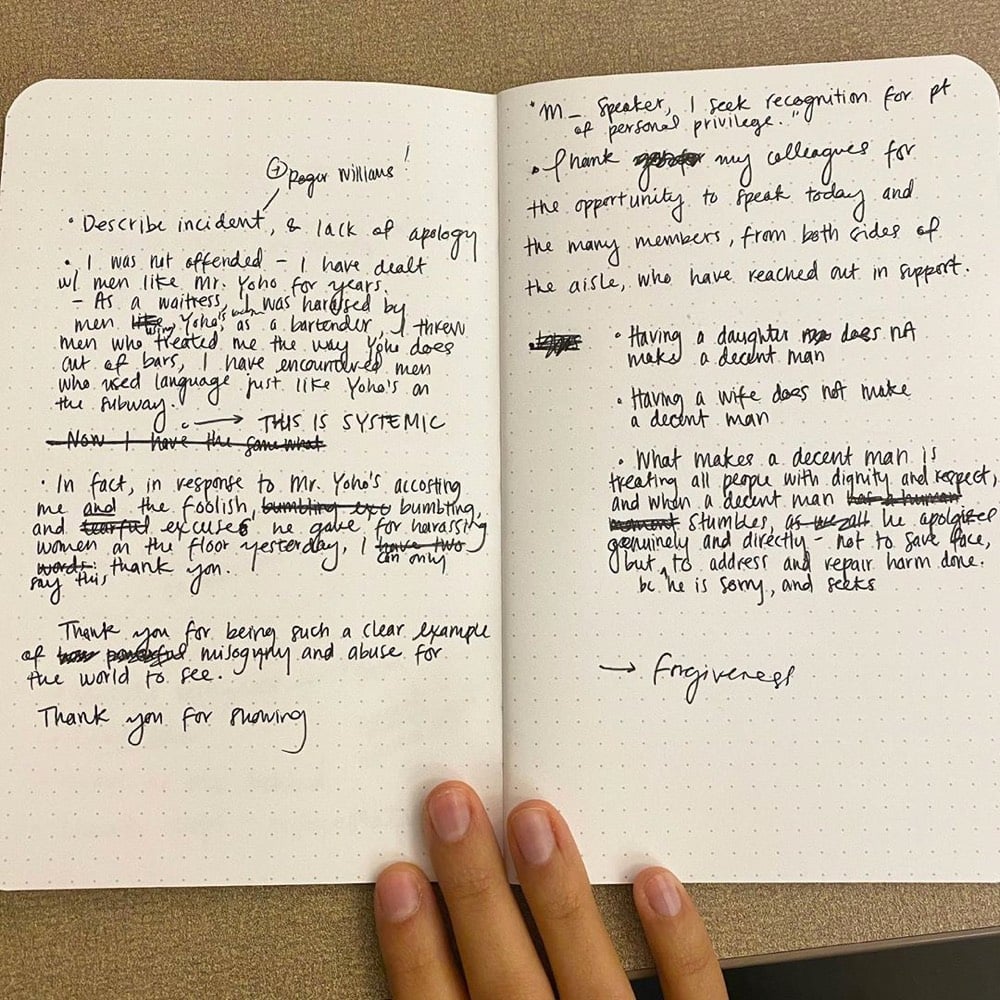 ⊕ Roger Williams!
• Describe incident, & lack of apology
• I was not offended – I have dealt
w/ men like Mr. Yoho for years.
– As a waitress, I was harassed by
men like Yoho's as a bartender, I threw
men who treated me the way Yoho does
out of bars, I have encountered men
who used language just like Yoho's on
the subway.
→ THIS IS SYSTEMIC
– Now I have the somewhat
• In fact, in response to Mr. Yoho's accosting
me and the foolish, bumbling exc bumbling,
and tearful excuses he gave for harassing
women on the floor yesterday, I have two
can only
words:
say this, thank you.
Thank you for being such a clear example
of how powerful misogyny and abuse for
the world to see.
Thank you for showing
"M_ Speaker, I seek recognition for pt
of personal privilege."
• Thank my colleagues for
the opportunity to speak today and
the many members, from both sides of
the aisle, who have reached out in support.
• Having a daughter does not
make a decent man
• Having a wife does not make
a decent man
• What makes a decent man is
treating all people with dignity and respect,
and when a decent man has a human
moment stumbles, as we all he apologizes
genuinely and directly – not to save face,
but to address and repair harm done.
bc he is sorry, and seeks
→ forgiveness